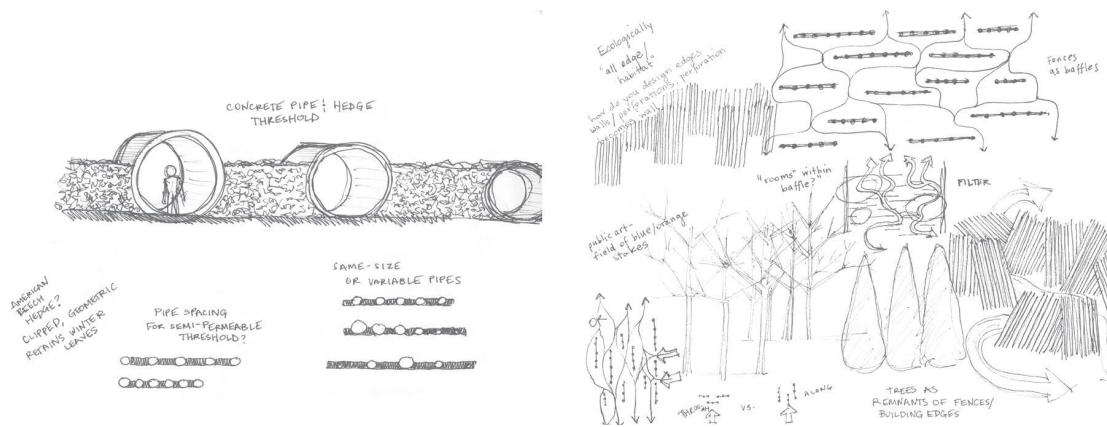 CONCRETE PIPE & HEDGE
THRESHOLD
AMERICAN
BEECH
HEDGE?
CLIPPED, GEOMETRIC
RETAINS WINTER
LEAVES
PIPE SPACING
FOR SEMI-PERMEABLE
THRESHOLD?
SAME-SIZE
OR VARIABLE PIPES
Ecologically
"all edge/
habitat"
how do you design edges
walls/perforations, perforation
becoming wall
Fences
as baffles
"rooms" within
baffle?"
FILTER
public art-
field of blue/orange
stakes
OR
THROUGH
VS.
ALONG
TREES AS
REMNANTS OF FENCES/
BUILDING EDGES